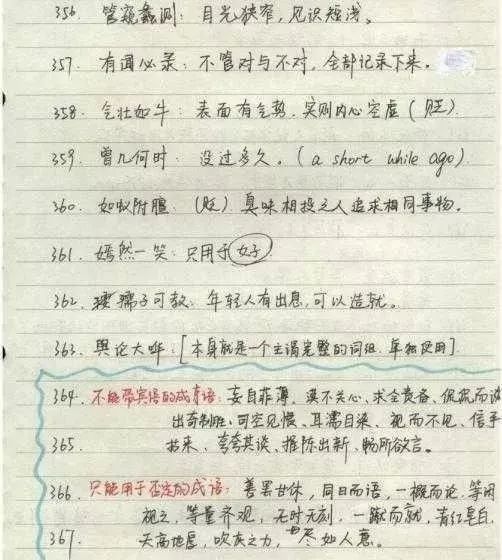 356. 管窥蠡测:目光狭窄,见识短浅。
357. 有闻必录:不管对与不对,全部记录下来。
358. 气壮如牛:表面有气势,实则内心空虚(贬)
359. 曾几何时:没过多久。(a short while ago)
360. 如蚁附膻:(贬)臭味相投之人追求相同事物。
361. 嫣然一笑:只用于女子
362. 孺子可教:年轻人有出息,可以造就。
363. 舆论大哗:[本身就是一个主谓完整的词组,单独使用]
364. 不能带宾语的成语:妄自菲薄、漠不关心、求全责备、侃侃而谈
出奇制胜、司空见惯、耳濡目染、视而不见、信手
365. 拈来、夸夸其谈、推陈出新、畅所欲言。
366. 只能用于否定的成语:善罢甘休,同日而语,一概而论,等闲
视之,等量齐观,无时无刻,一蹴而就,青红皂白,
367. 天高地厚,吹灰之力,尽如人意。